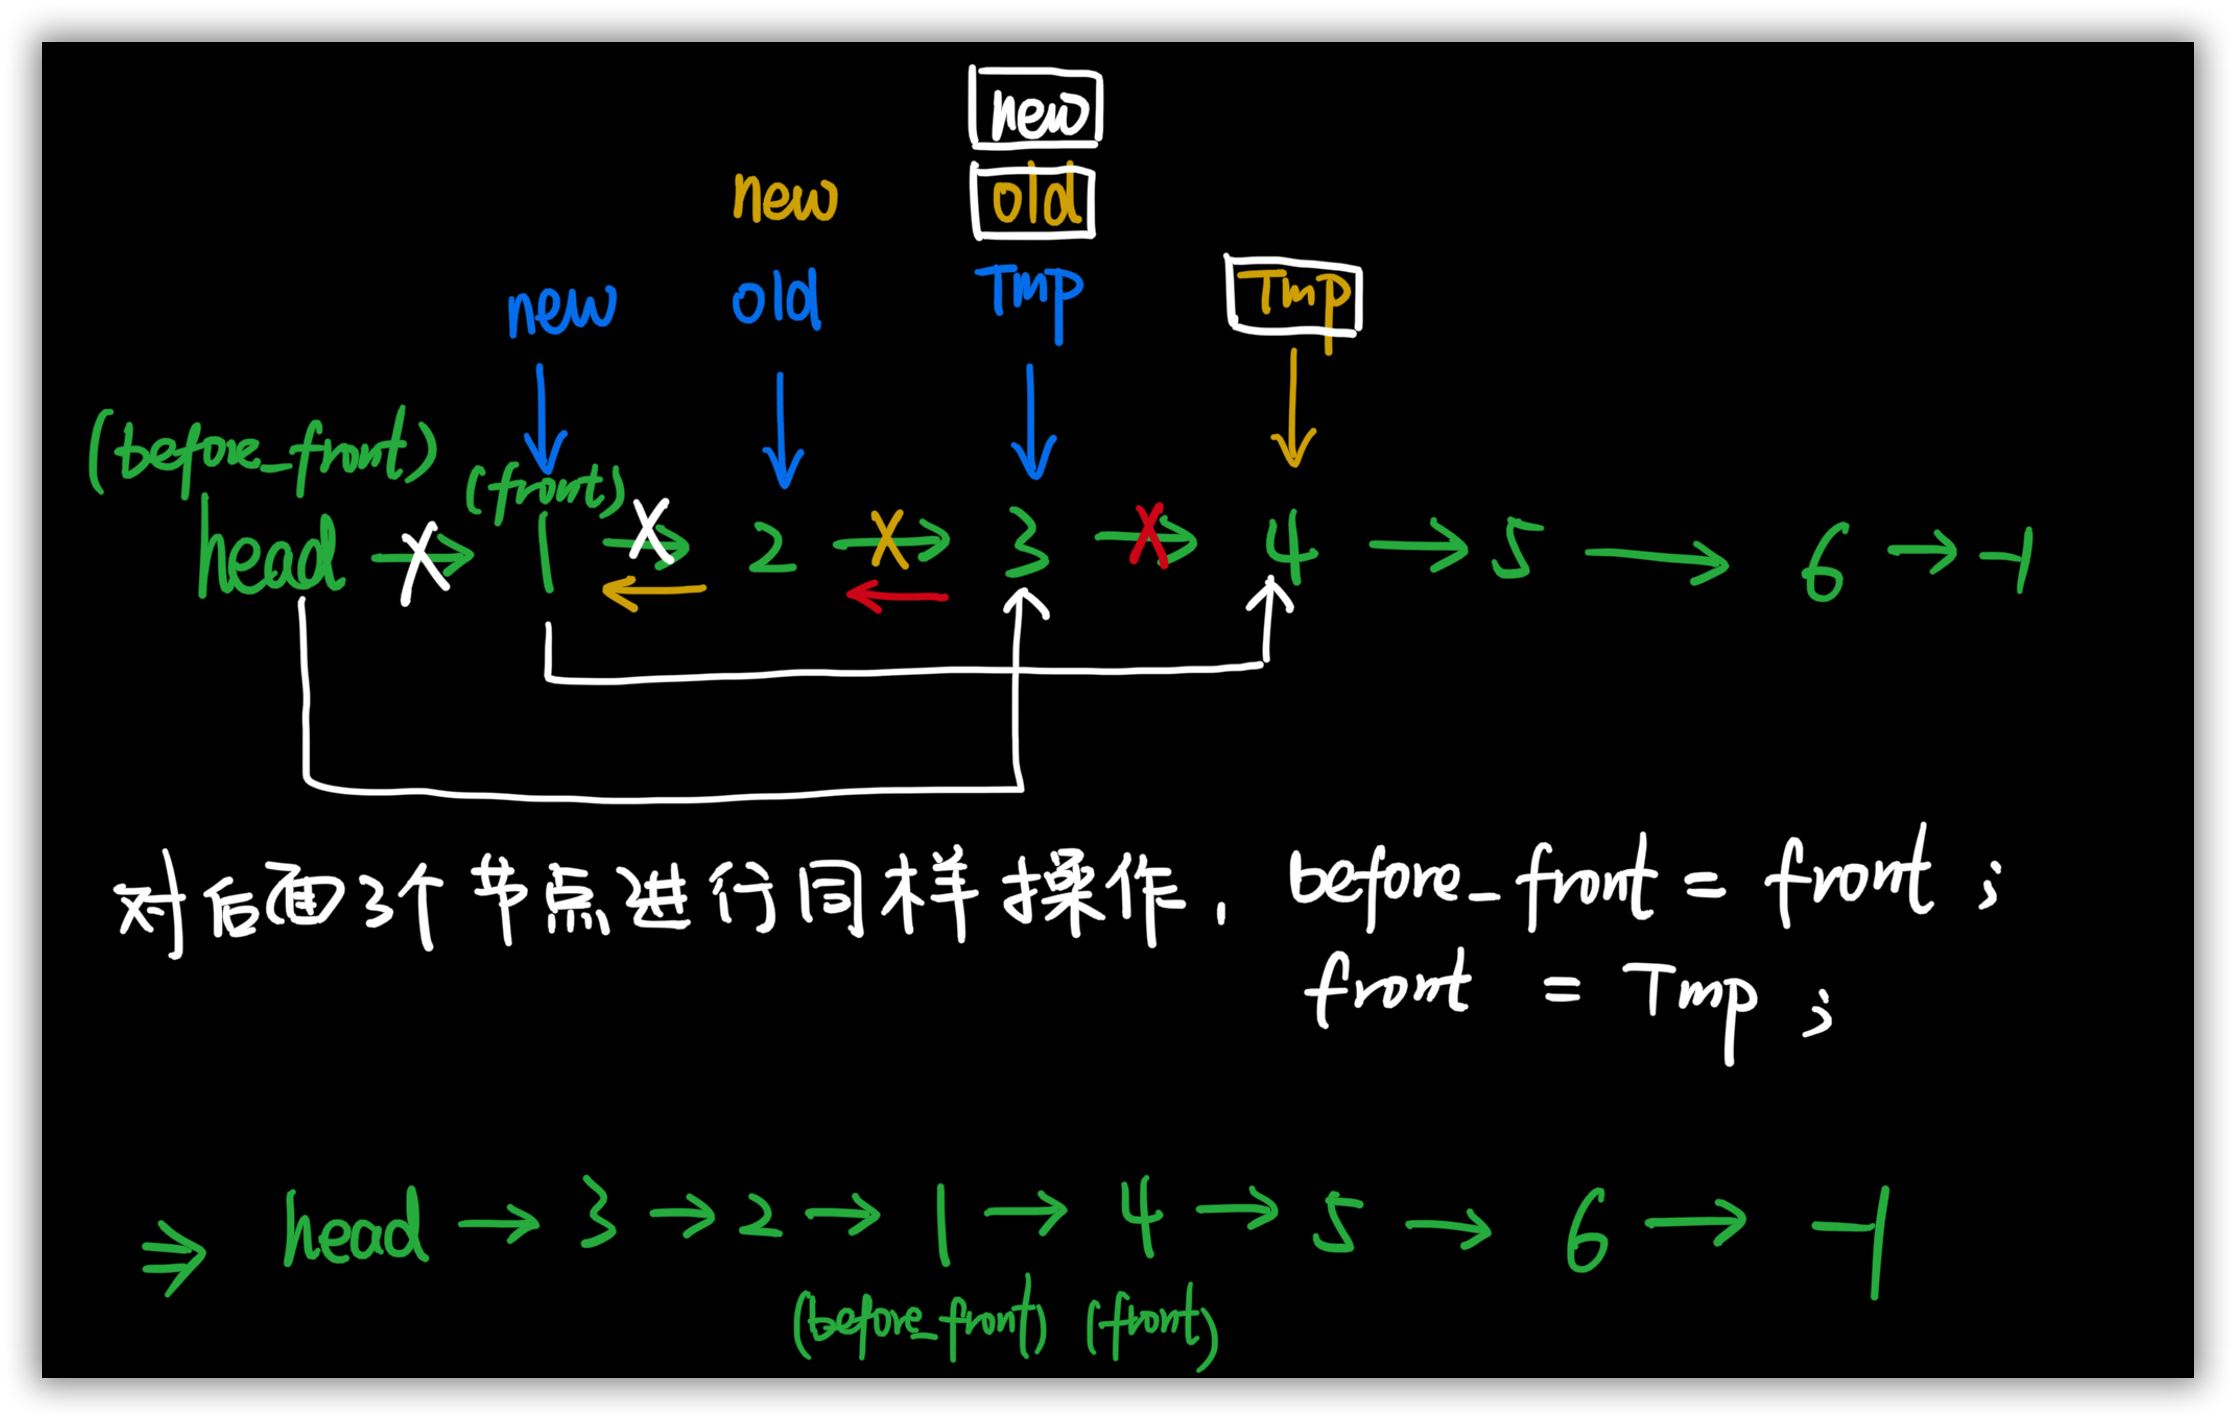 new
new old
new old Tmp Tmp
(before_front) (front)
head → 1 → 2 → 3 → 4 → 5 → 6 → -1
对后面3个节点进行同样操作, before_front = front ;
front = Tmp ;
⇒ head → 3 → 2 → 1 → 4 → 5 → 6 → -1
(before_front) (front)